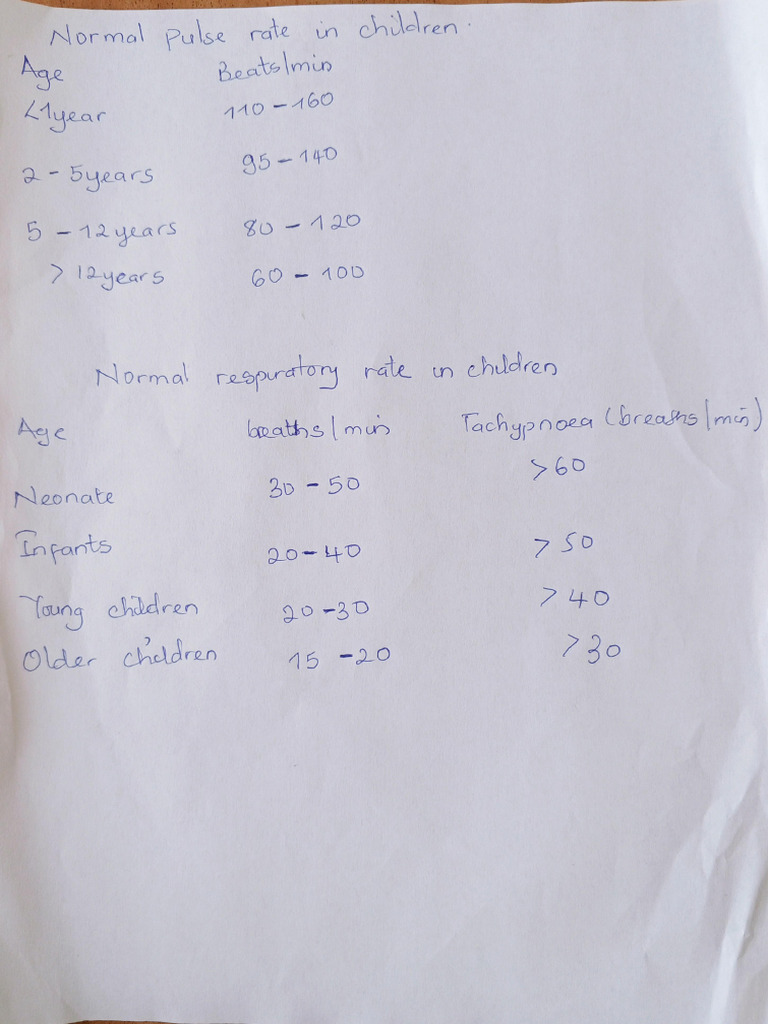 Normal pulse rate in children.
Age Beats/min
<1year 110 - 160
2 - 5years 95 - 140
5 - 12years 80 - 120
> 12years 60 - 100
Normal respiratory rate in children
Age breaths/min Tachypnoea (breaths/min)
Neonate 30 - 50 >60
Infants 20-40 > 50
Young children 20-30 > 40
Older children 15 -20 > 30